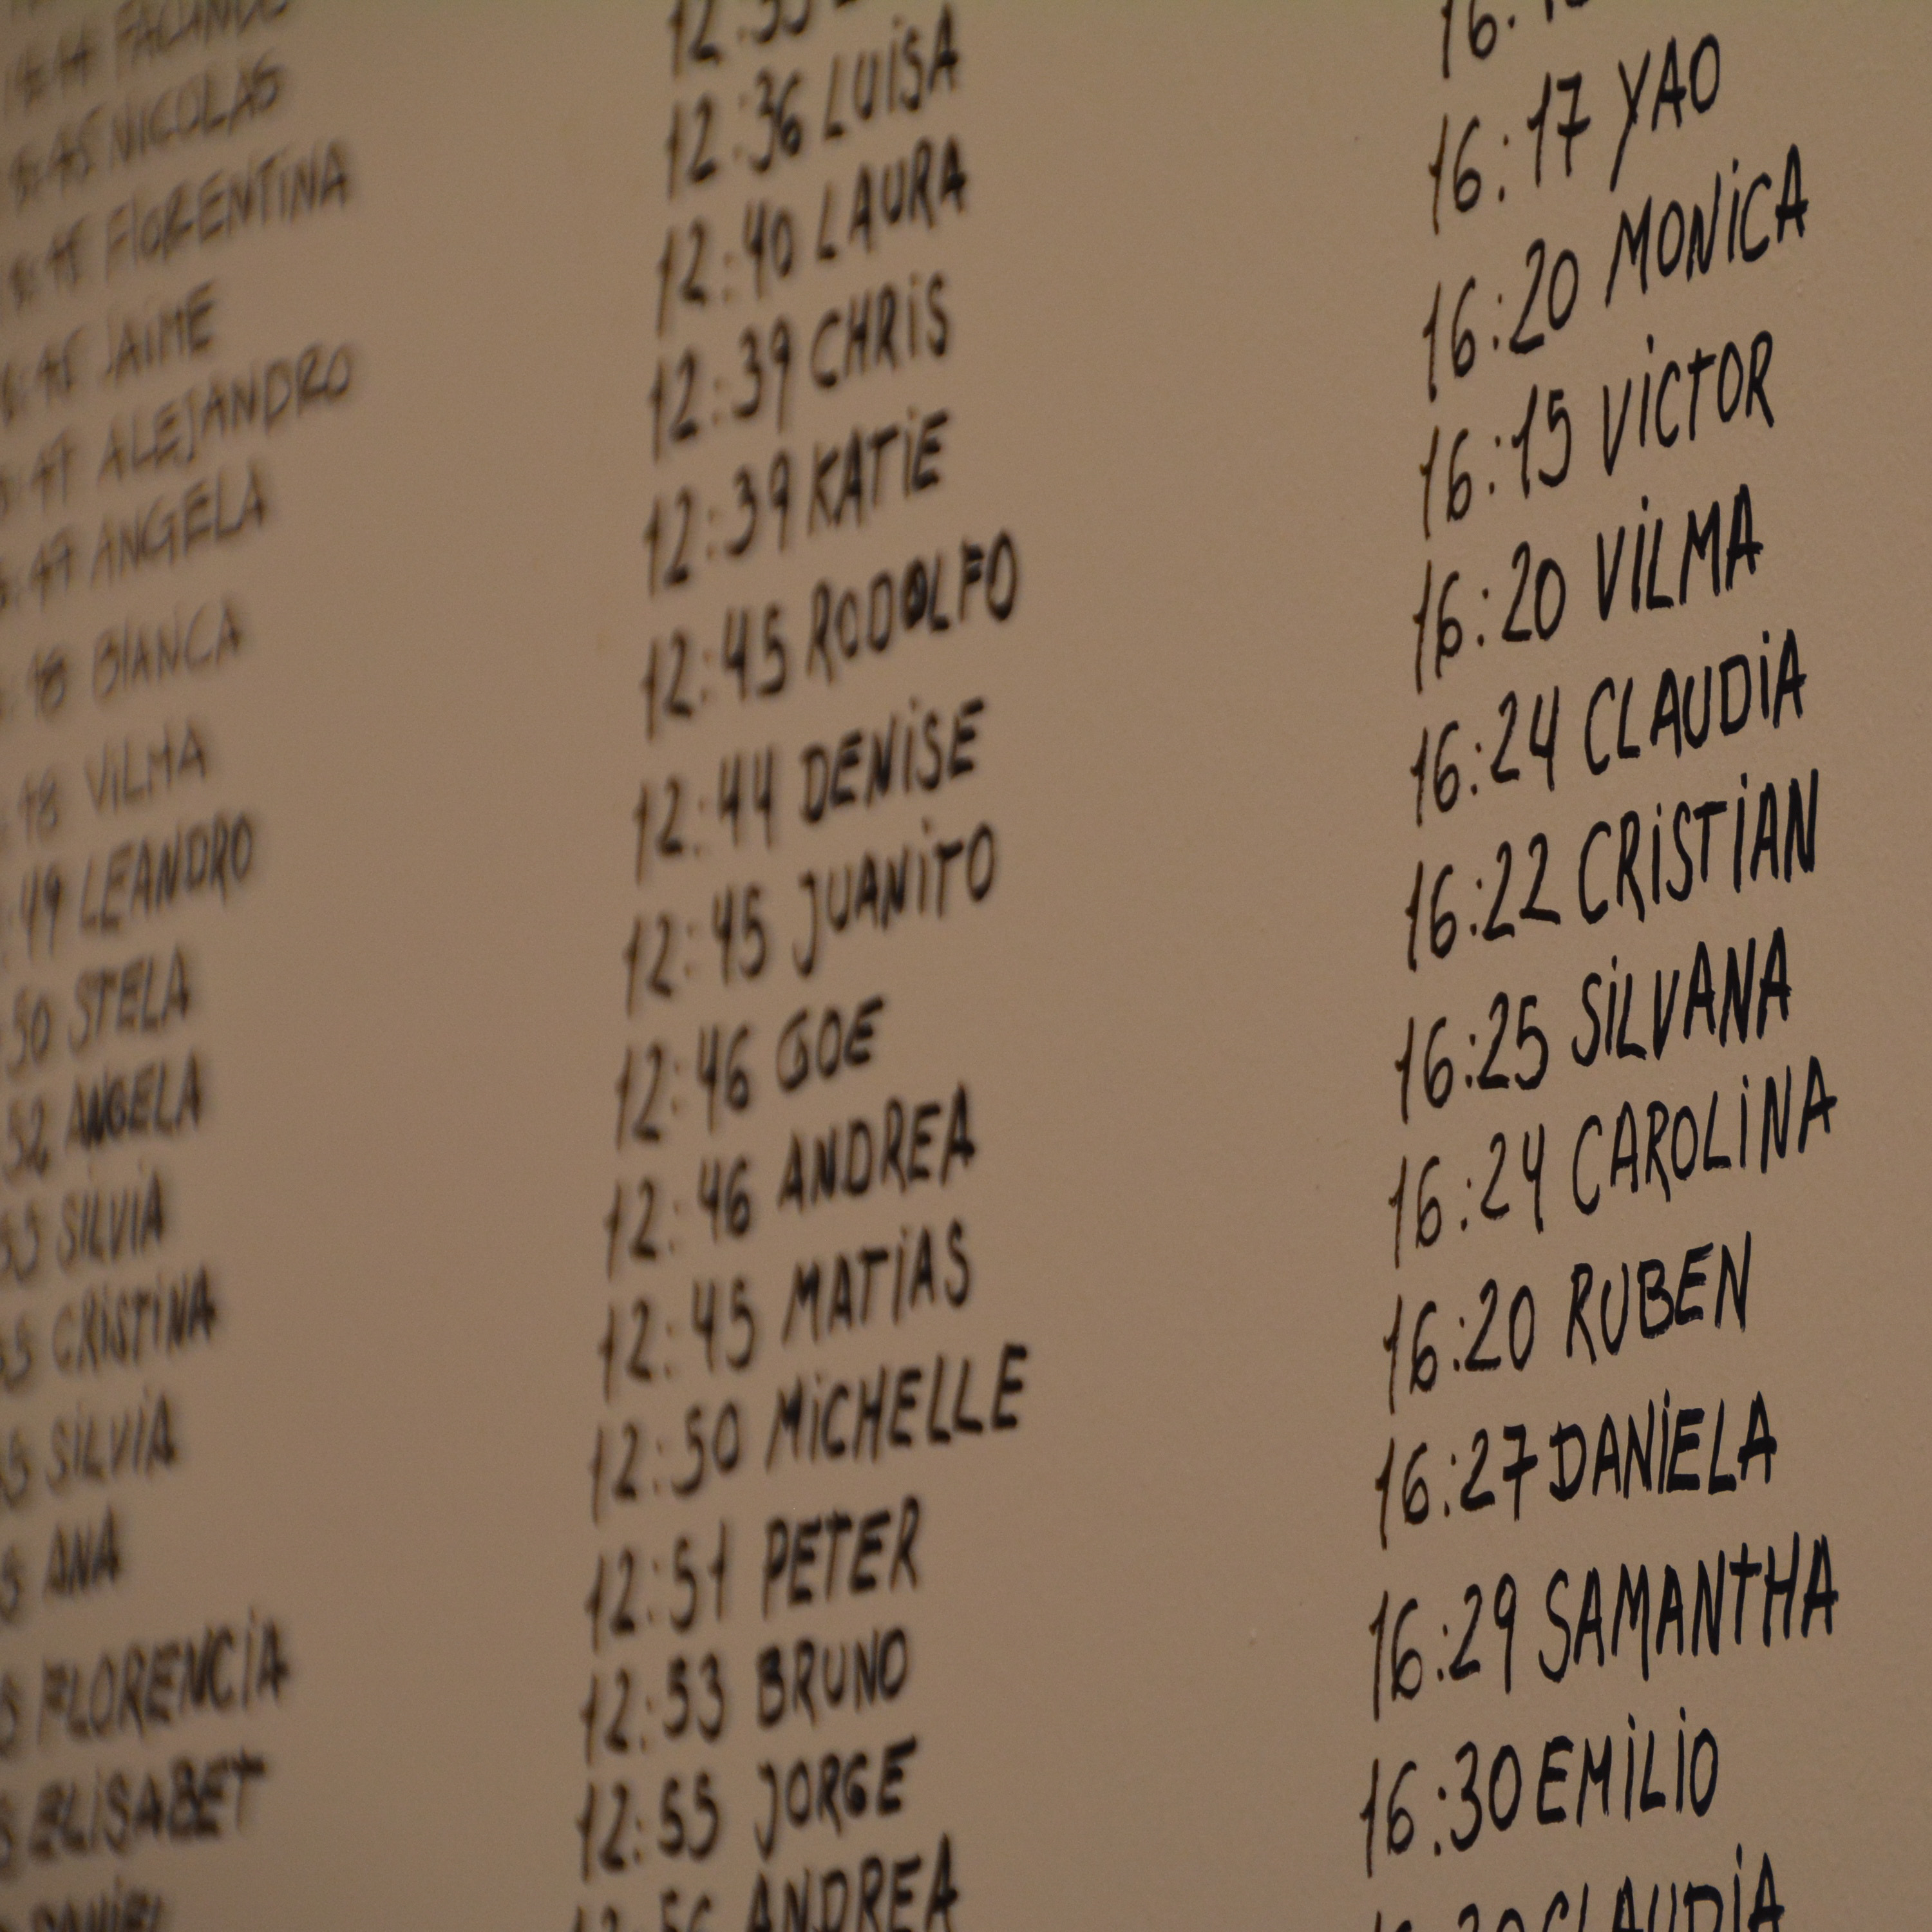 NICOLAS
FLORENTINA
JAIME
ALEJANDRO
ANGELA
BIANCA
VILMA
49 LEANDRO
50 STELA
52 ANGELA
SILVIA
CRISTINA
SILVIA
ANA
FLORENCIA
ELISABET
DANIEL
12:36 LUISA
12:40 LAURA
12:39 CHRIS
12:39 KATIE
12:45 RODOLFO
12:44 DENISE
12:45 JUANITO
12:46 GOE
12:46 ANDREA
12:45 MATIAS
12:50 MICHELLE
12:51 PETER
12:53 BRUNO
12:55 JORGE
12:56 ANDREA
16:17 YAO
16:20 MONICA
16:15 VICTOR
16:20 VILMA
16:24 CLAUDIA
16:22 CRISTIAN
16:25 SILVANA
16:24 CAROLINA
16:20 RUBEN
16:27 DANIELA
16:29 SAMANTHA
16:30 EMILIO
CLAUDIA